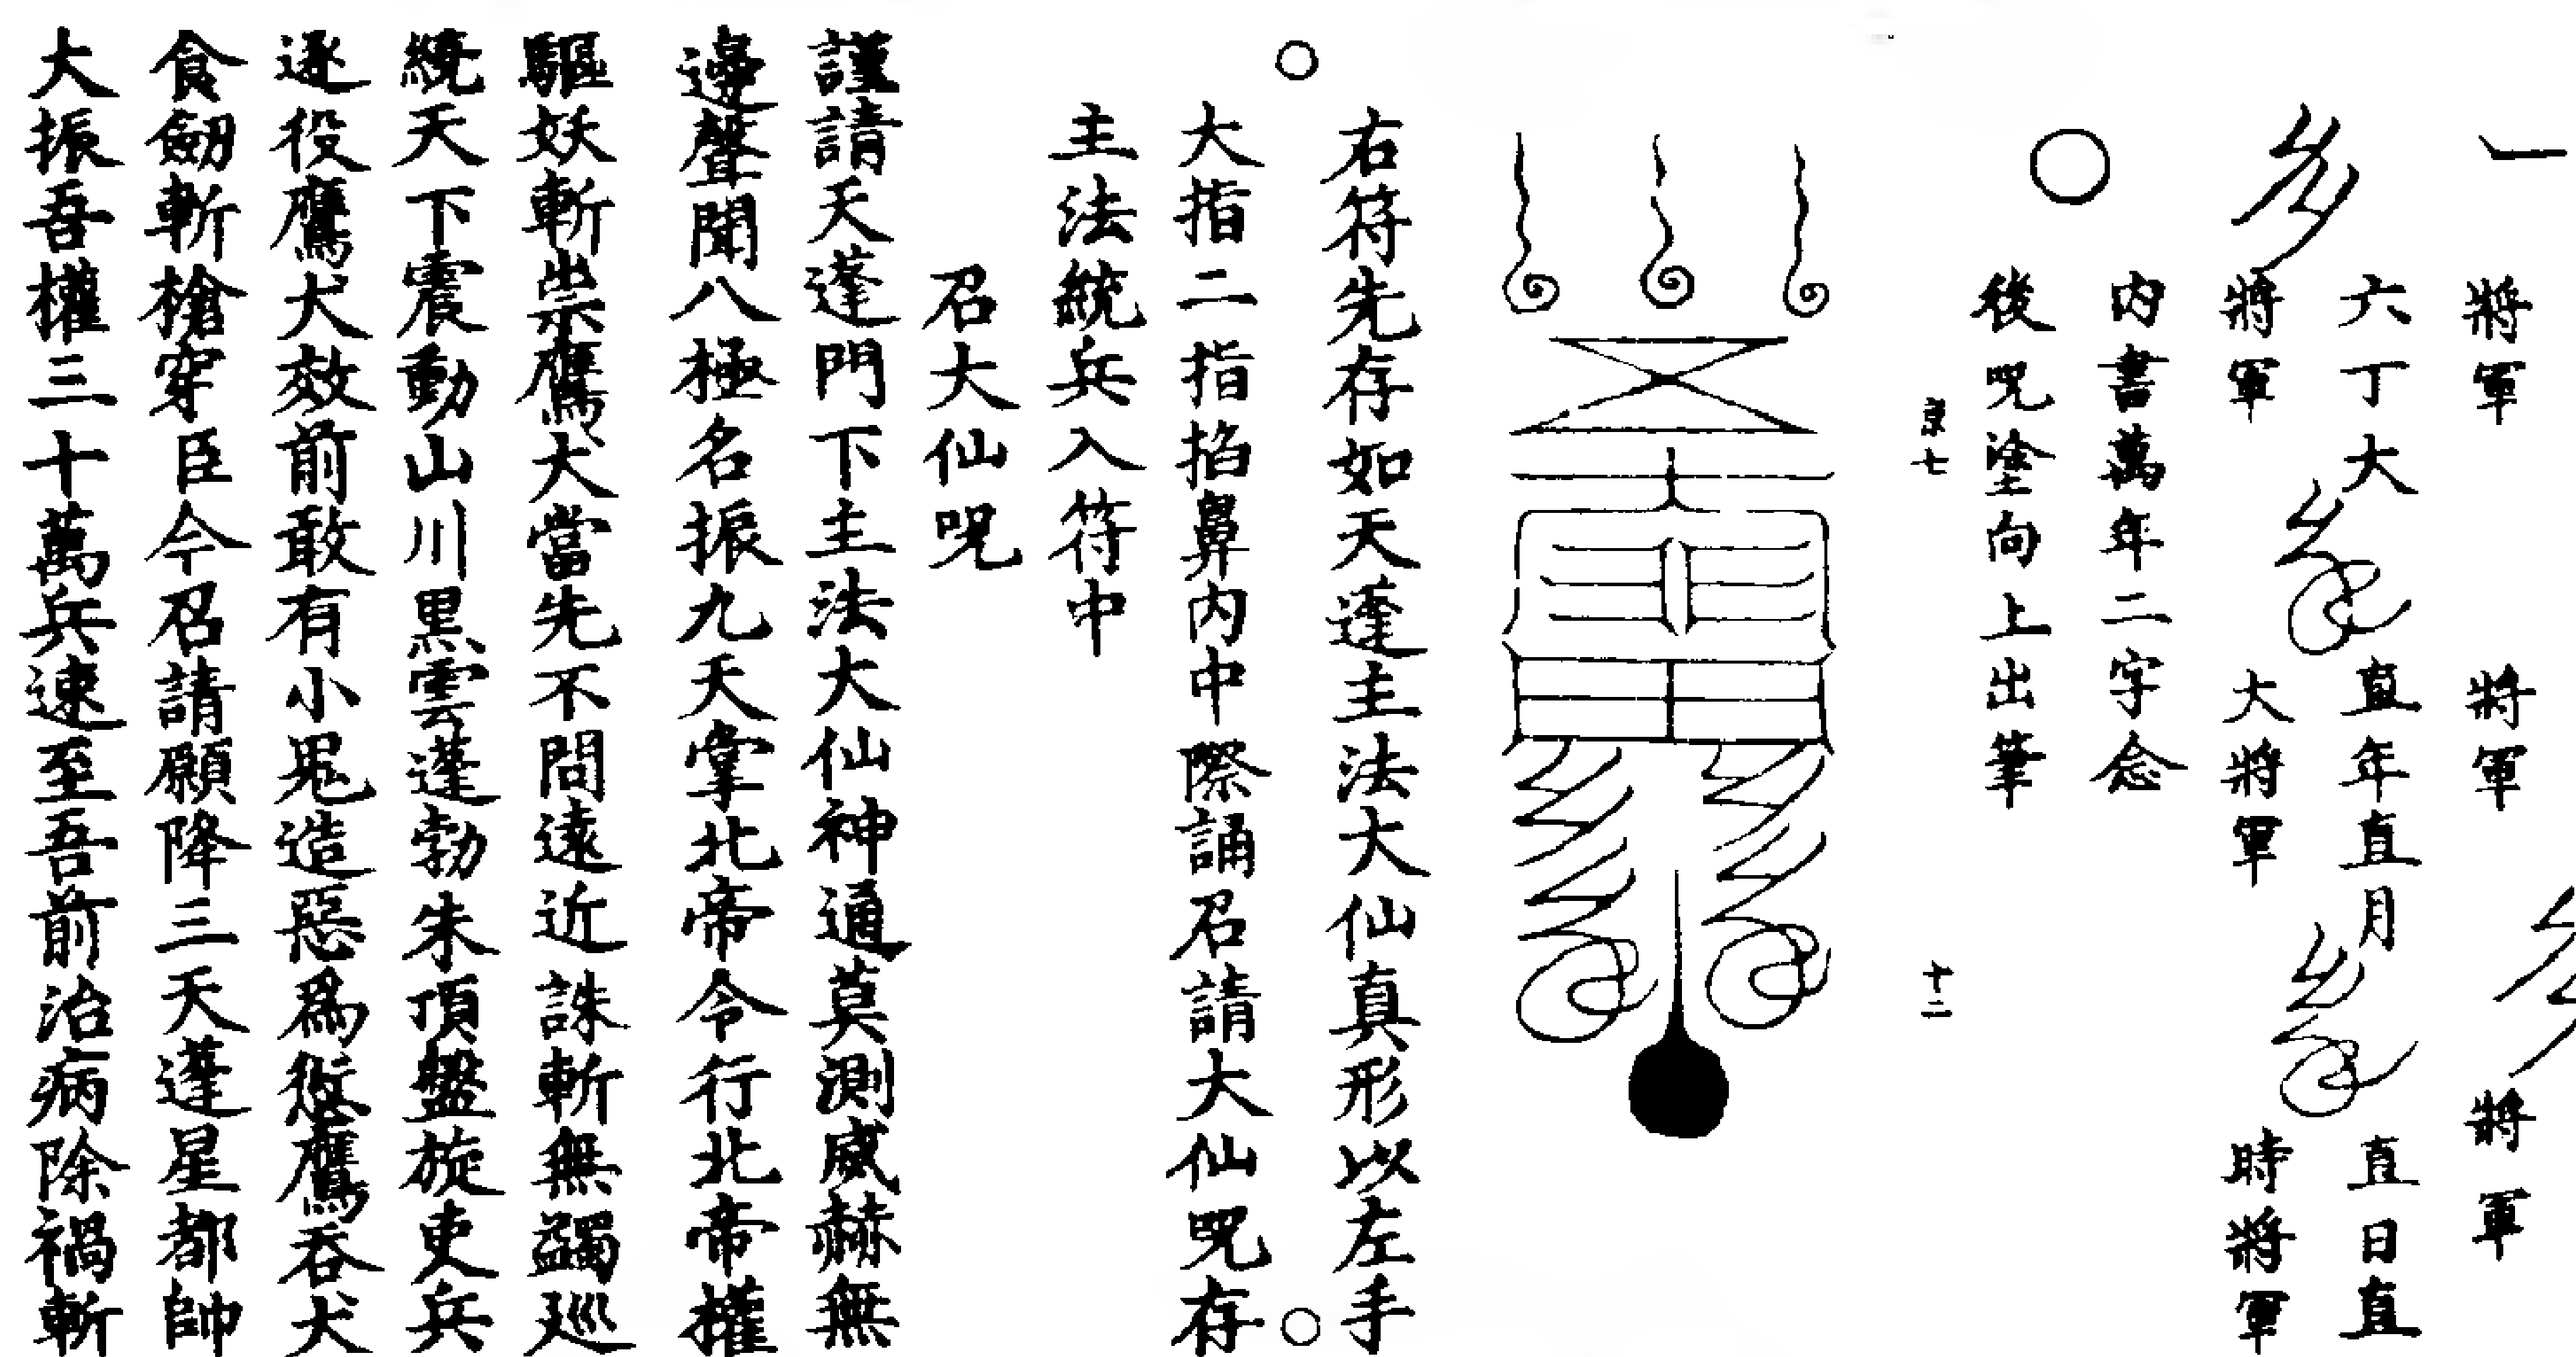 將軍 將軍 將軍
六丁大 直年直月 直日直
將軍 大將軍 時將軍
內書萬年二字念
後咒塗向上出筆
京七 十二
右符先存如天蓬主法大仙真形以左手
大指二指掐鼻內中際誦召請大仙咒存
主法統兵入符中
召大仙咒
謹請天蓬門下主法大仙神通莫測威赫無
邊聲聞八極名振九天掌北帝令行北帝權
驅妖斬祟鷹犬當先不問遠近誅斬無蠲巡
繞天下震動山川黑雲蓬勃朱頂盤旋吏兵
逐役鷹犬效前敢有小鬼造惡為愆鷹吞犬
食劒斬槍穿臣今召請願降三天蓬星都帥
大振吾權三十萬兵速至吾前治病除禍斬